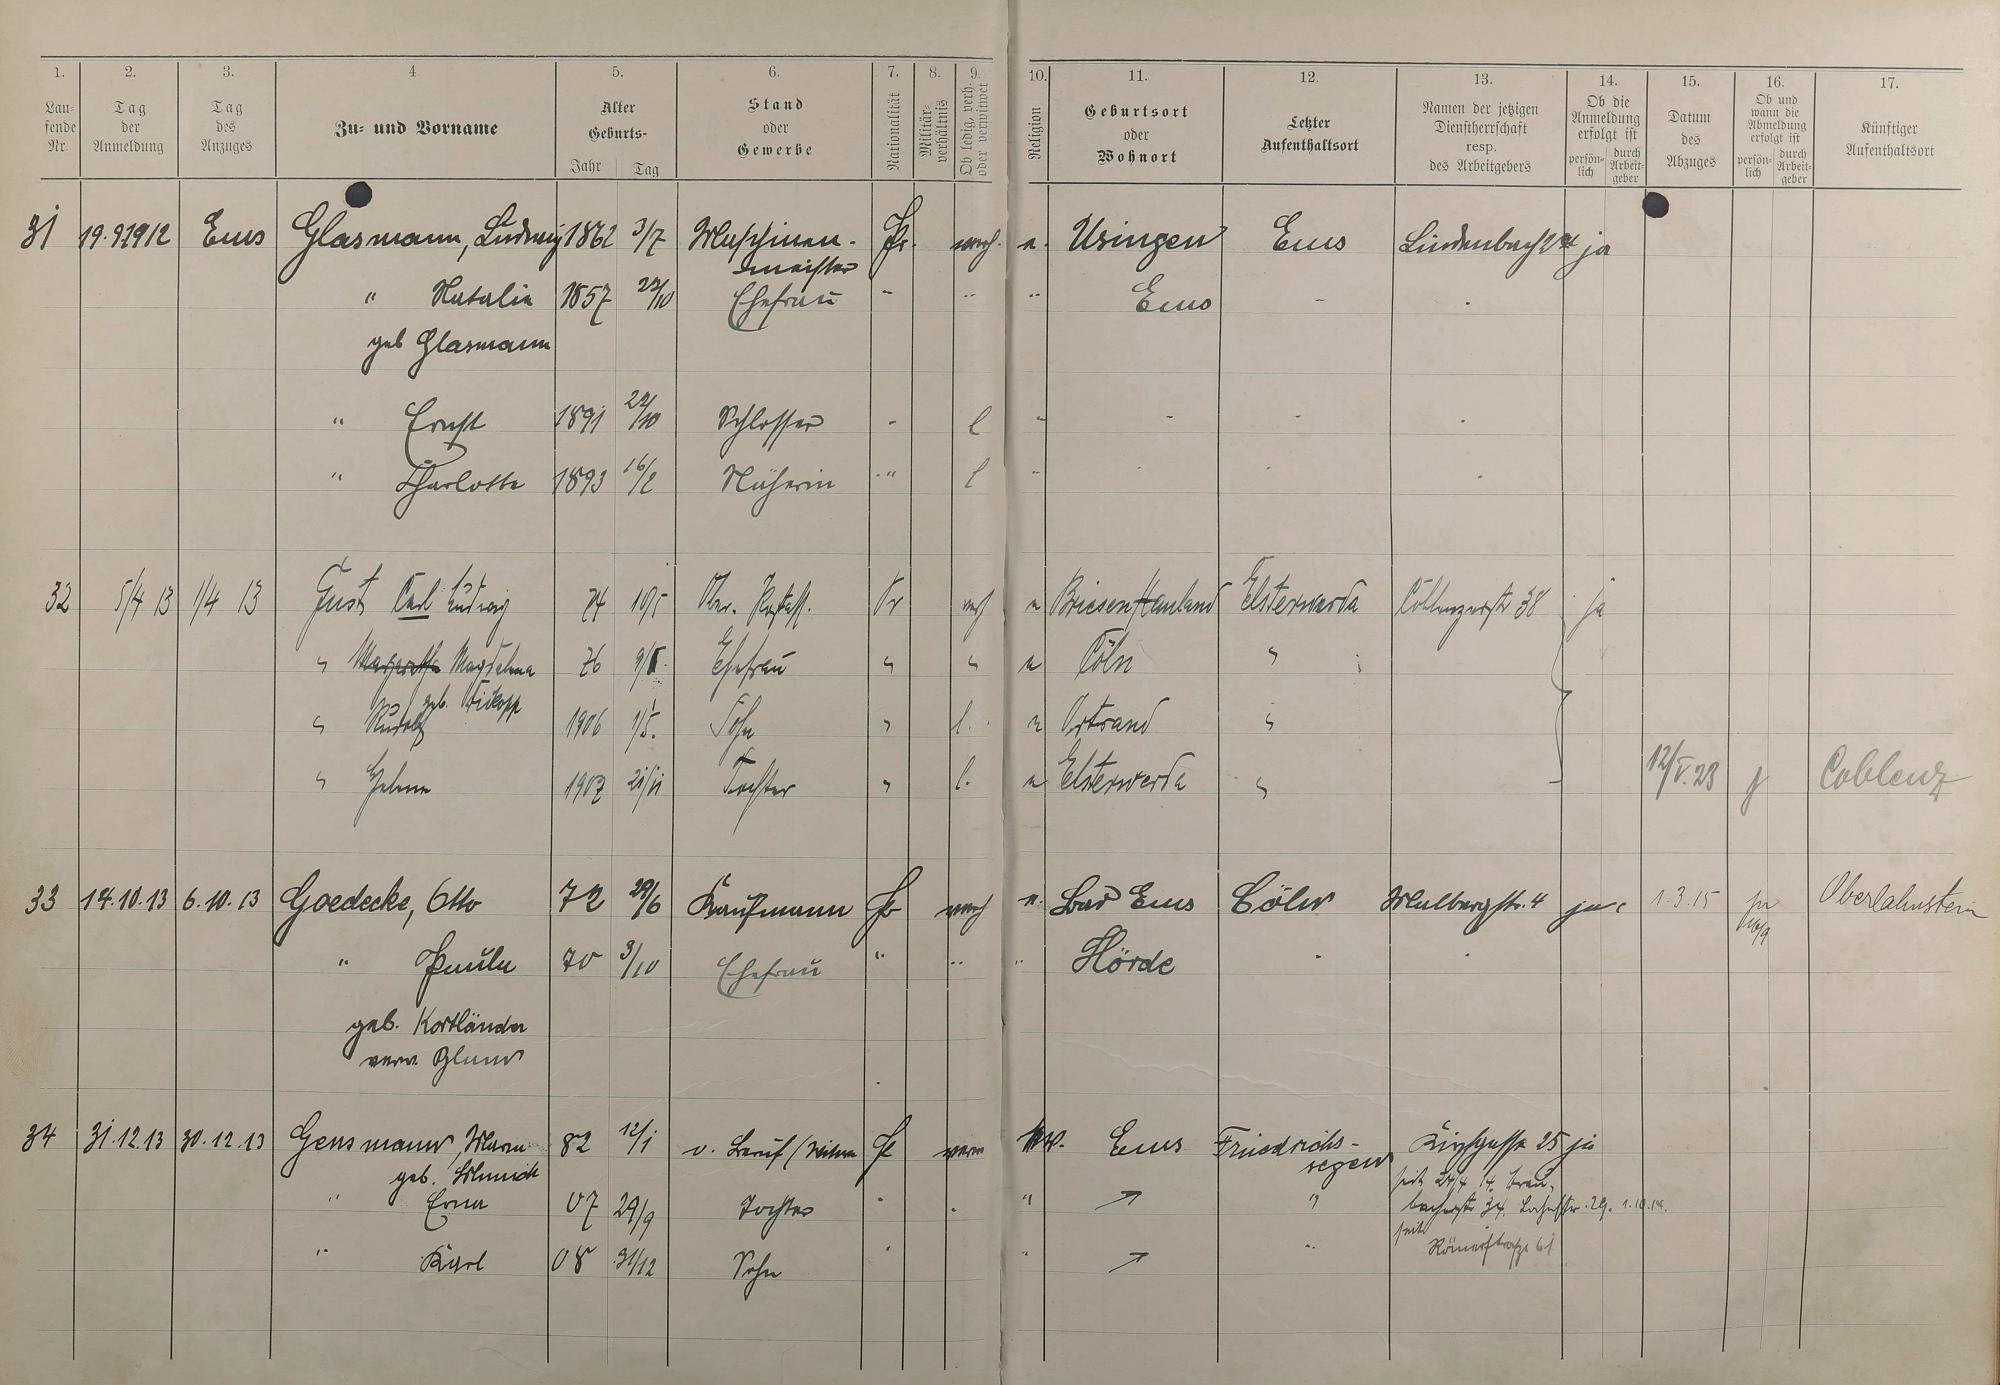 1. 2. 3. 4. 5. 6. 7. 8. 9. 10. 11. 12. 13. 14. 15. 16. 17.
Lau-
fende
Nr.
Tag
der
Anmeldung
Tag
des
Anzuges
Zu- und Vorname
Alter
Geburts-
Jahr Tag
Stand
oder
Gewerbe
Nationalität
Militär-
verhältnis
Ob ledig, verh.
oder verwitwet
Religion
Geburtsort
oder
Wohnort
Letzter
Aufenthaltsort
Namen der jetzigen
Dienstherrschaft
resp.
des Arbeitgebers
Ob die
Anmeldung
erfolgt ist
persön-
lich
durch
Arbeit-
geber
Datum
des
Abzuges
Ob und
wann die
Abmeldung
erfolgt ist
persön-
lich
durch
Arbeit-
geber
Künftiger
Aufenthaltsort
31 19.9.1912 Ems Glasmann, Ludwig 1862 3/7 Maschinen- Pr. verh. e. Usingen Ems Lindenbach ja
meister
" Natalie 1857 Ehefrau - " " Ems - -
geb Glasmann
" Ernst 1891 Schlosser - l " - - -
" Charlotte 1893 16/2 Näherin " l " - - -
32 5/4 13 1/4 13 Just Carl Ludwig 74 10/5 Pr verh e Briesen Havland Elsterwerda Coblenzerstr 38 ja
" Margarethe Magdalena 76 Ehefrau " " e Cöln "
geb.
" Rudolf 1906 1/5. Sohn " l. e Ortrand "
" Helene 1907 21/11 Tochter " l. e Elsterwerda " 12/V.23 j Coblenz
33 14.10.13 6.10.13 Goedecke, Otto 72 29/6 Kaufmann Pr verh e. Bad Ems Cöln Malbergstr. 4 ja 1.3.15 Oberlahnstein
" Paula 70 3/10 Ehefrau " " " Hörde - -
geb. Kortländer
verw. Blum
34 31.12.13 30.12.13 Gensmann, Maria 82 12/1 o. Beruf Pr verw Ems Friedrichs- Kirchgasse 25 ja
segen
geb. Schmidt
" Erna 07 29/9 Tochter " " " 1.10.14.
seit
" Karl 08 31/12 Sohn " " " Römerstraße 61